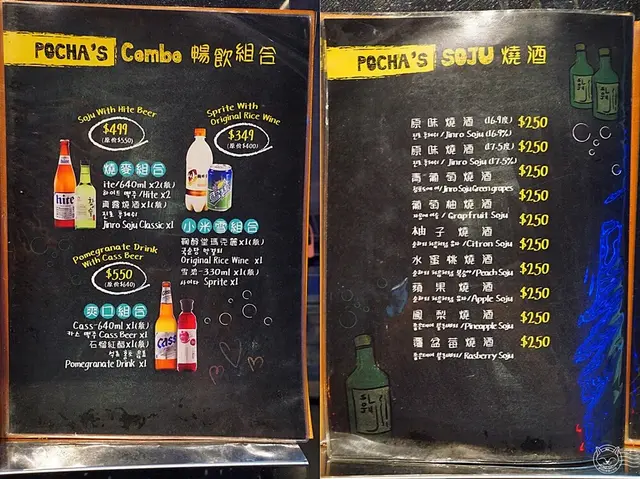 POCHA'S Combo 暢飲組合
Soju With Hite Beer
$499
(原价$550)
燒麥組合
ite/640ml x2(瓶)
하이트 맥주/Hite x2
青露燒酒x1(瓶)
Jinro Soju Classic x1
Sprite With
Original Rice Wine
$349
(原价$400)
小米雪組合
麴醇堂瑪克麗x1(瓶)
국순당 막걸리
Original Rice Wine x1
雪碧-330ml x1(瓶)
사이다 Sprite x1
Pomegranate Drink
With Cass Beer
$550
(原价$640)
爽口組合
Cass-640ml x1(瓶)
카스 맥주 Cass Beer x1
石榴紅醋x1(瓶)
석류 홍초 음료
Pomegranate Drink x1
hite
Cass
POCHA'S SOJU 燒酒
原味燒酒 (16.9度) $250
/Jinro Soju(16.9%)
原味燒酒 (17.5度) $250
/ Jinro Soju (17.5%)
青葡萄燒酒 $250
/Jinro Soju Green grapes
葡萄柚燒酒 $250
/ Grapfruit Soju
柚子燒酒 $250
/Citron Soju
水蜜桃燒酒 $250
/Peach Soju
蘋果燒酒 $250
/Apple Soju
鳳梨燒酒 $250
/Pineapple Soju
覆盆莓燒酒 $250
/ Rasberry Soju